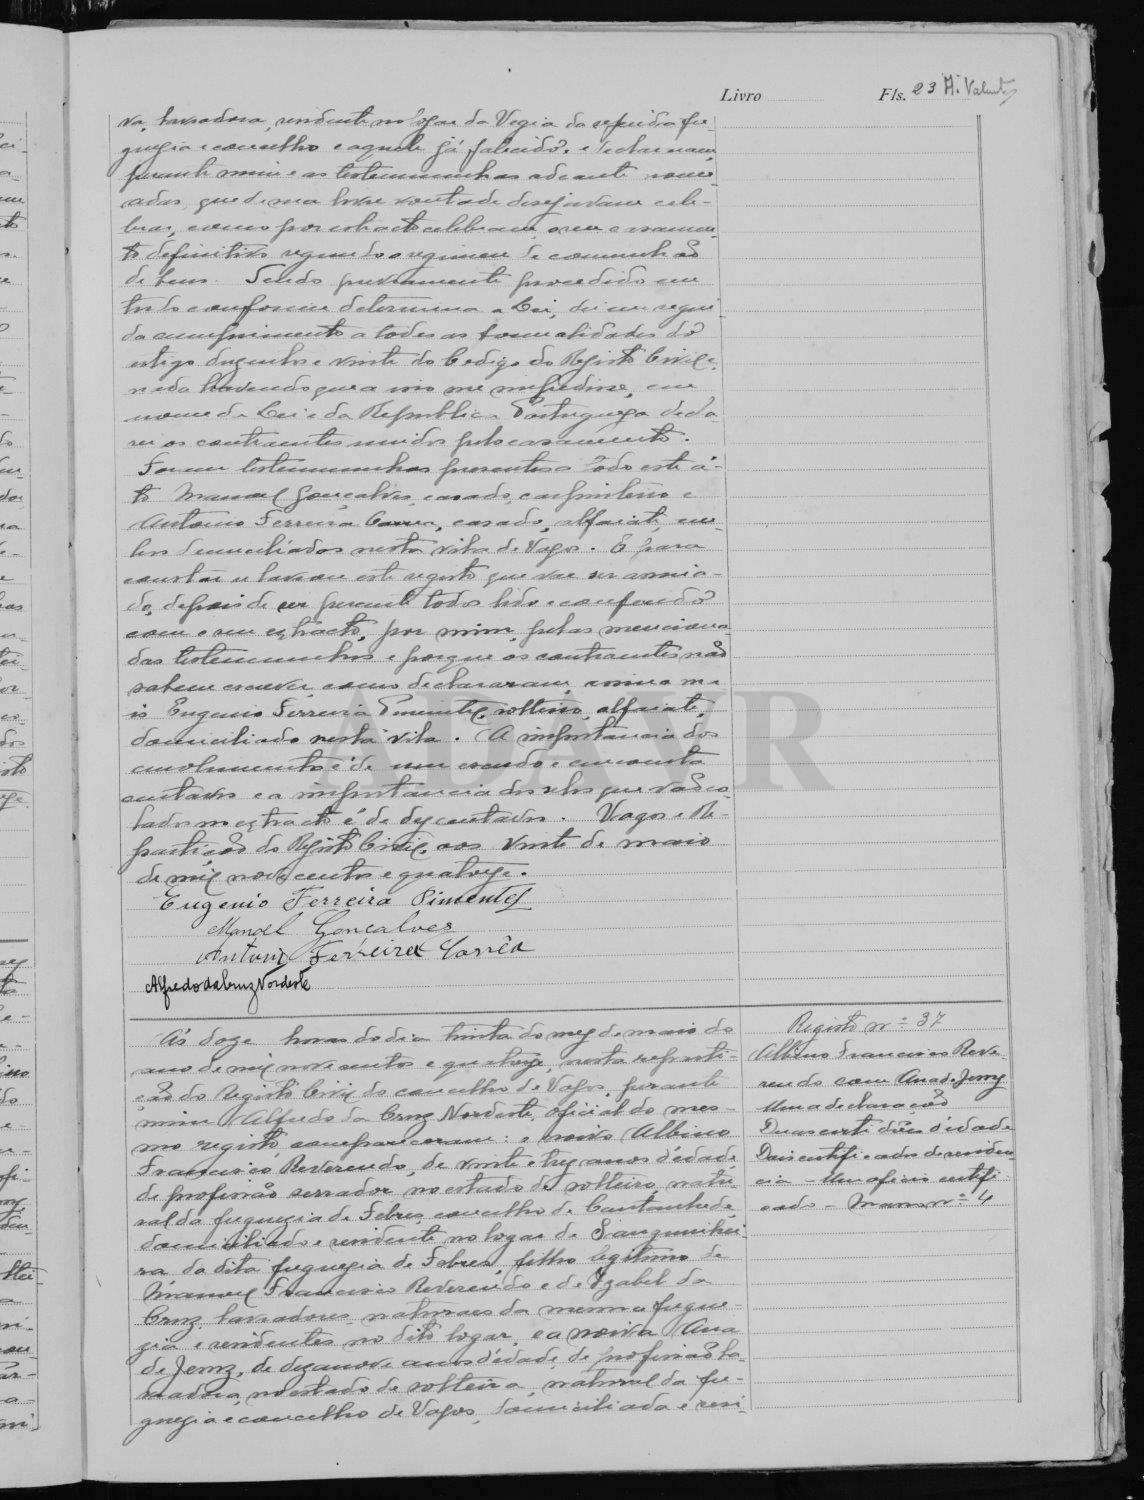 Livro Fls. 23 A. Valente
va, lavradora, residente no logar da Vegia da referida fre-
guezia e concelho e aquele já falecido. e declararam
perante mim e as testemunhas adeante nome-
adas, que de sua livre vontade desejavam cele-
brar, como por este acto celebram, o seu casamen-
to definitivo segundo o regimen de comunhão
de bens. Tendo previamente procedido em
tudo conforme determina a Lei, dei em segui-
da cumprimento a todas as formalidades do
artigo duzentos e vinte do Codigo do Registo Civil e
nada havendo que a isso me impedisse, em
nome da Lei e da Republica Portugueza decla-
rei os contraentes unidos pelo casamento.
Foram testemunhas presentes a todo este á-
to Manuel Gonçalves, casado, carpinteiro e
Antonio Ferreira Corrêa, casado, alfaiate, am-
bos domiciliados nesta vila de Vagos. E para
constar se lavrou este registo que vae ser assina-
do, depois de ser perante todos lido e conferido
com o seu extracto, por mim, pelas menciona-
das testemunhas e porque os contraentes não
sabem escrever, como declararam, assina ma-
is Eugenio Ferreira Pimentel, solteiro, alfaiate,
domiciliado nesta vila. A importancia dos
emolumentos é de um escudo e cincoenta
centavos e a importancia dos selos que vão co-
lados no extracto é de dez centavos. Vagos e Re-
partição do Registo Civil, aos vinte de maio
de mil nove centos e quatorze.
Eugenio Ferreira Pimentel
Manoel Gonçalves
Antonio Ferreira Corrêa
Alfredo da Cruz Nordeste
Ás doze horas do dia trinta do mez de maio do
ano de mil novecentos e quatorze, nesta reparti-
ção do Registo Civil do concelho de Vagos, perante
mim Alfredo da Cruz Nordeste, oficial do mes-
mo registo, compareceram: o noivo Albino
Francisco Reverendo, de vinte e trez anos d'edade,
de profissão serrador, no estado de solteiro, natu-
ral da freguezia de Febres, concelho de Cantanhede,
domiciliado e residente no logar de Sanguinhei-
ra, da dita freguezia de Febres, filho legitimo de
Manuel Francisco Reverendo e de Izabel da
Cruz, lavradores, naturaes da mesma fregue-
zia e residentes no dito logar, e a noiva Ana
de Jesus, de dezanove anos d'edade, de profissão la-
vradora, no estado de solteira, natural da fre-
guezia e concelho de Vagos, domiciliada e resi-
Registo nº 37
Albino Francisco Reve-
rendo com Ana de Jesus
Uma declaração
Duas certidões d'idade
Dois certificados de residen-
cia - Um oficio certifi-
cado - Masso nº 4
ADAVR